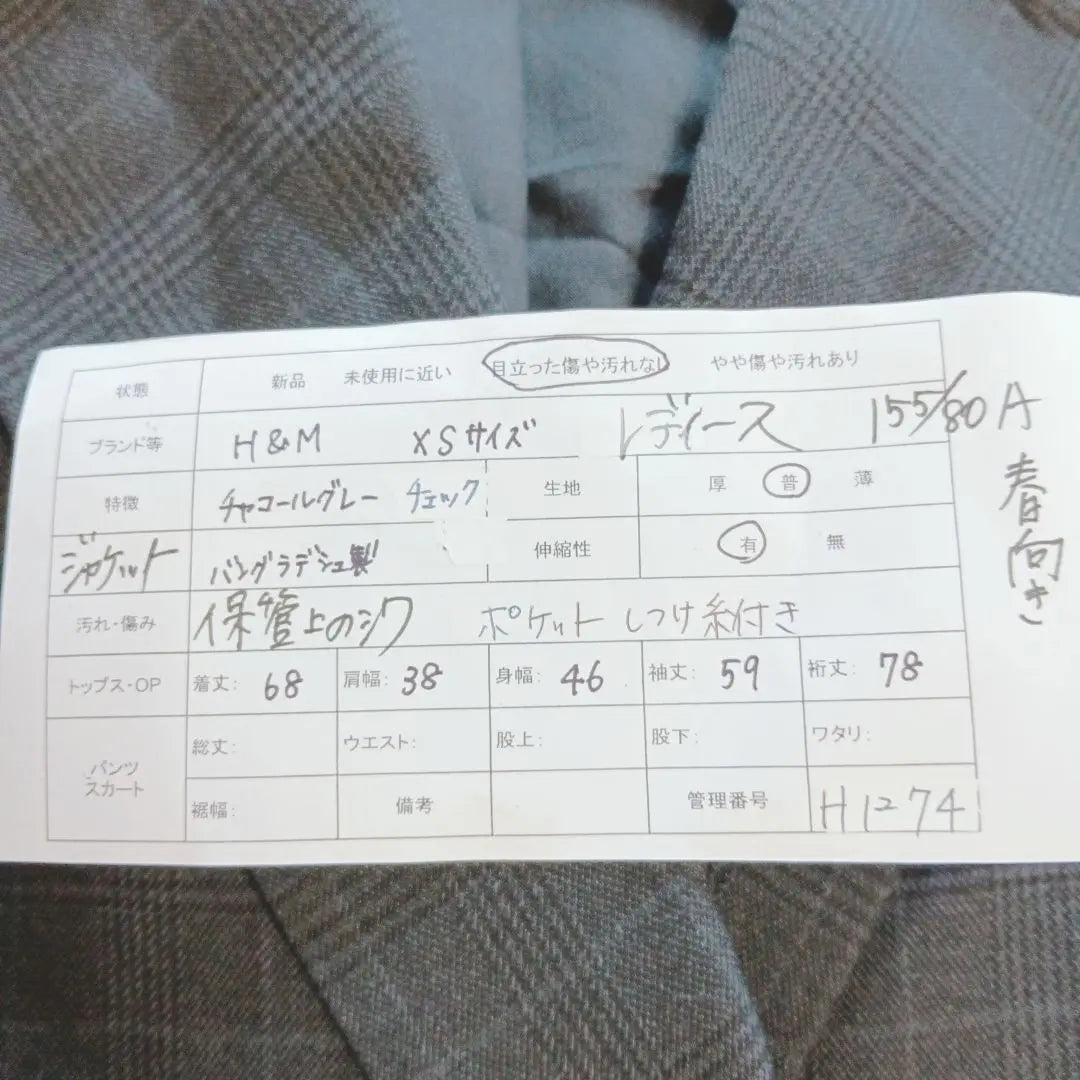 状態 新品 未使用に近い 目立った傷や汚れなし やや傷や汚れあり
ブランド等 H&M XSサイズ レディース 155/80A
特徴 チャコールグレー チェック 生地 厚 普 薄
春向き
ジャケット バングラデシュ製 伸縮性 有 無
汚れ・傷み 保管上のシワ ポケットしつけ糸付き
トップス・OP 着丈: 68 肩幅: 38 身幅: 46 袖丈: 59 裄丈: 78
パンツ
スカート
総丈: ウエスト: 股上: 股下: ワタリ:
裾幅: 備考 管理番号 H1274